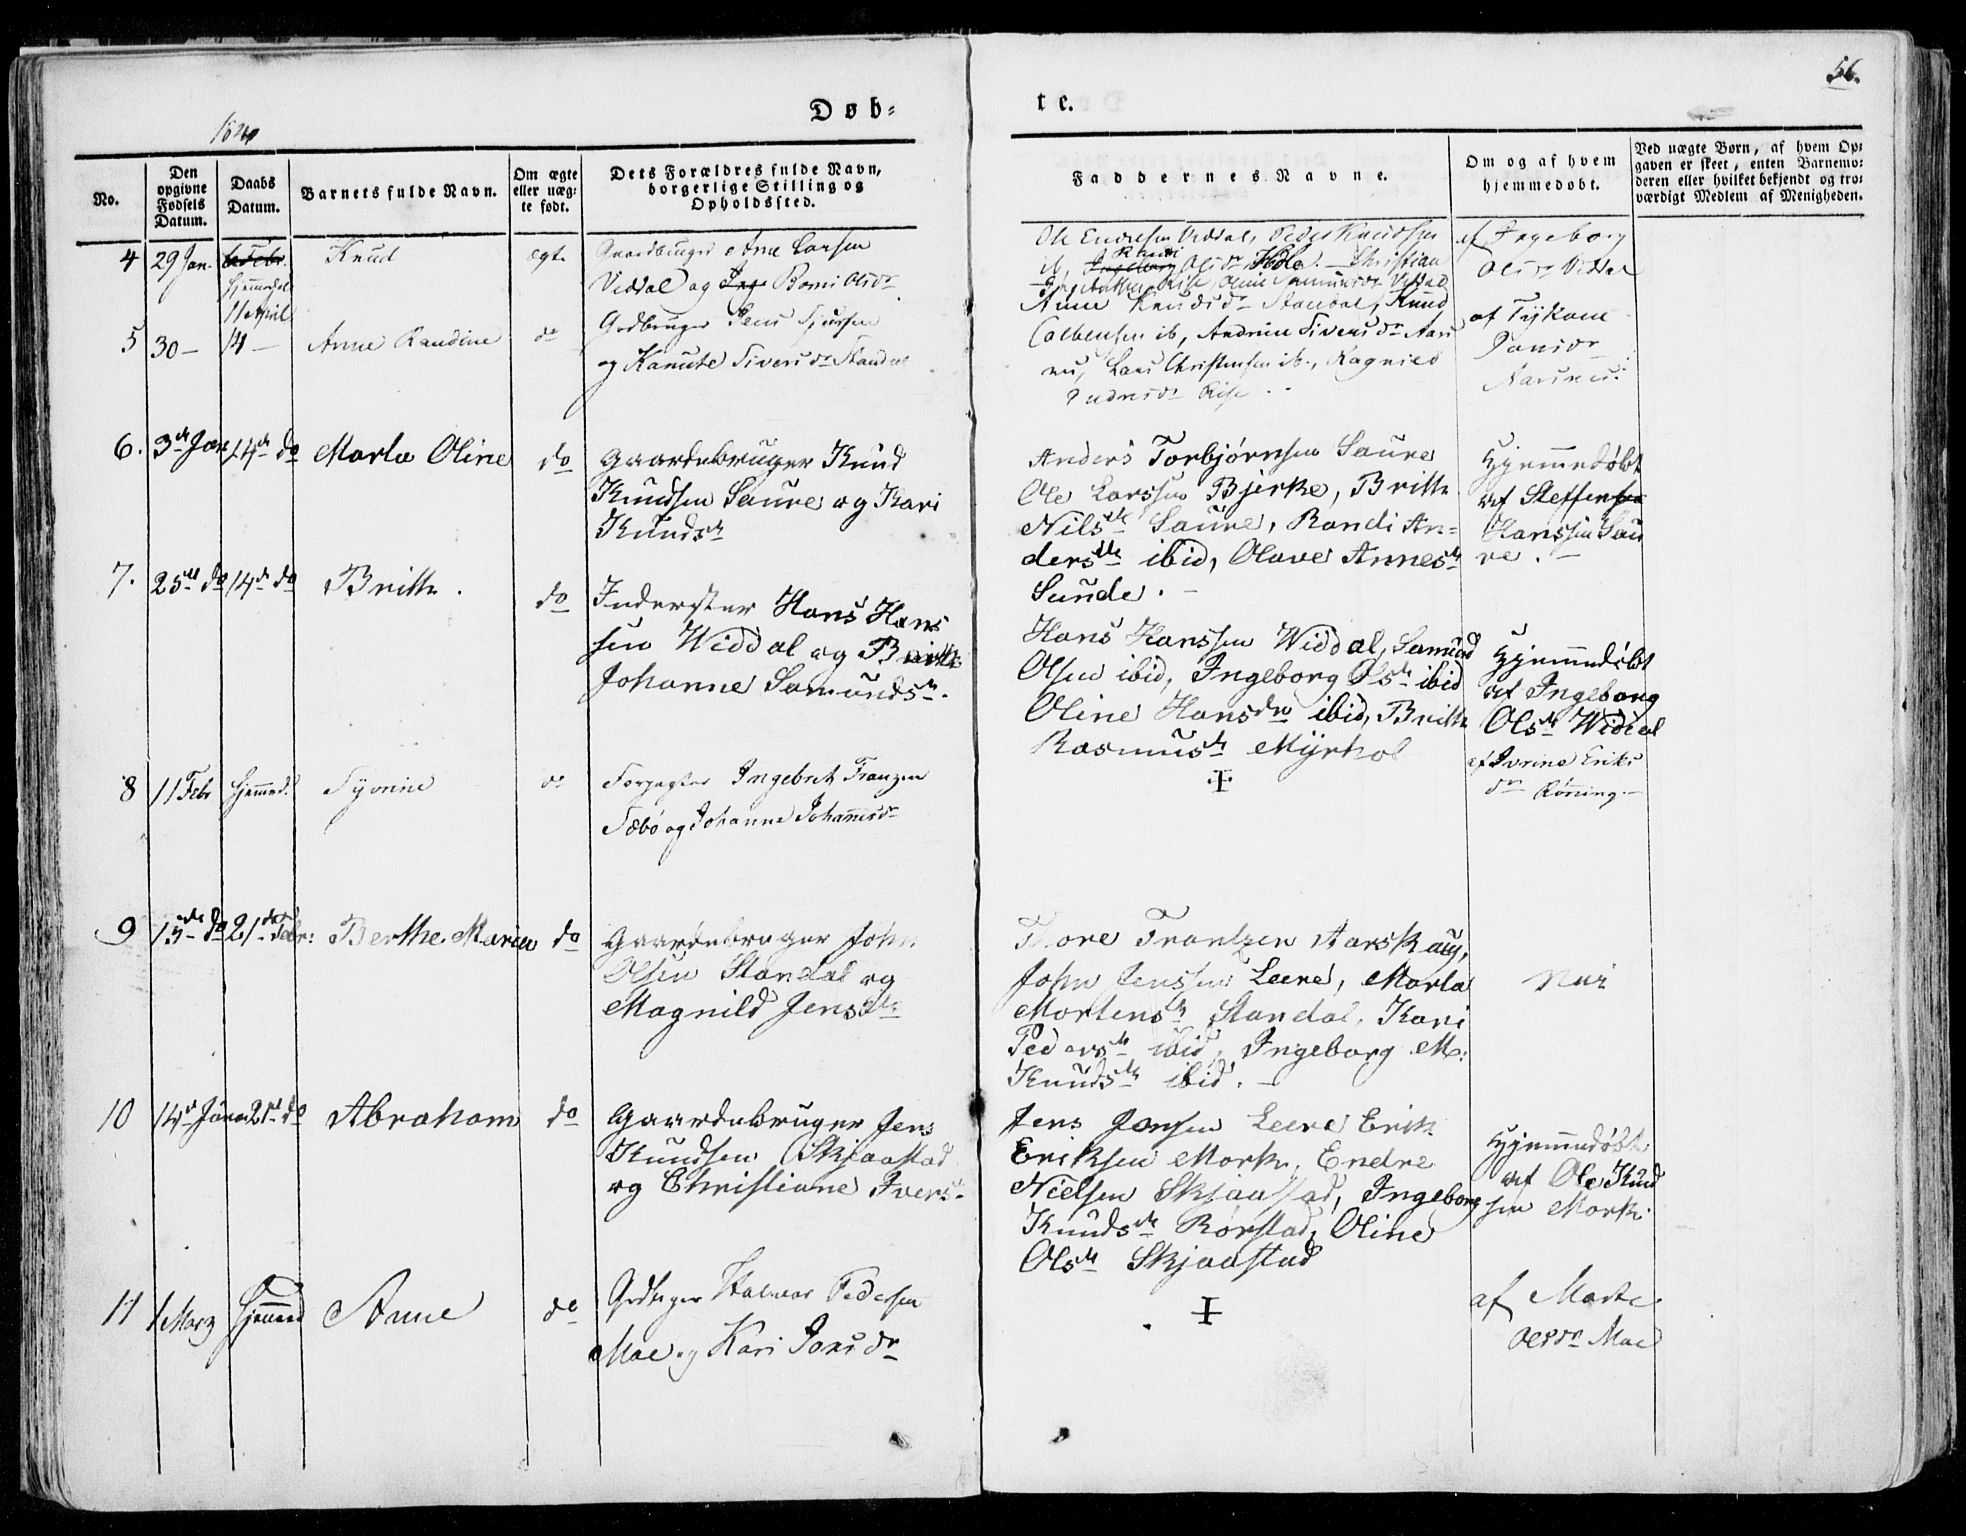 56.
Døb=
te.
No.
Den opgivne Fødsels Datum.
Daabs Datum.
Barnets fulde Navn.
Om ægte eller uæg= te født.
Dets Forældres fulde Navn, borgerlige Stilling og Opholdssted.
Faddernes Navne.
Om og af hvem hjemmedøbt.
Ved uægte Børn, af hvem Op= gaven er skeet, enten Barnemo= deren eller hvilket bekjendt og tro= værdigt Medlem af Menigheden.
4 29 Jan. Knud ægte
Viddal og Romi Olsdr
Ole Endresen Viddal, Peder Knudsen
af Ingeborg
Olsdr Viddal
11 April
5 30 – 14 – Anne Randine do
og Kanute Siversdr Standal
Anne Knudsdr Standal, Knud
ib, Andrine Siversdr Aars
næs, Lars Christensen ib., Ragnild
Rise
af
Aarsnes.
6. 3de Jan 14de do Marta Oline do
Gaardebruger Knud
Knudsen Saure og Kari
Knudsdr
Anders Torbjørnsen Saure
Ole Larssen Bjerke, Britte
Nilsdtr Saure, Randi An=
dersdtr ibid, Olave Annesdtr
Sunde. –
Hjemmedøbt
af Steffen
Hanssen Sau
re. –
7. 25de do 14de do Britte. do
Inderster Hans Hans
sen Widdal og
Johanne Samundsdtr.
Hans Hanssen Widdal, Samund
Olsen ibid, Ingeborg Olsdtr ibid
Oline Hansdtr ibid, Britte
Rasmusdtr Myrhol
Hjemmedøbt
af Ingeborg
Olsdtr Widdal
8 11 Febr Hjemmed. Syvrine do
Forpagter Ingebret Franzen
Sæbø og Johanne Johannesdr
+
af Ivrine Eriks
dr Rønning. –
9 15de do 21de Febr: Berthe Maria do
Gaardebruger John
Olsen Standal og
Magnild Jensdtr
Thore Frantzen Aarskaug,
John Jenssen Leere, Marta
Mortensdtr Standal, Kari
Pedersdtr ibid, Ingeborg M:
Knudsdtr ibid. –
Nei
10 14de Januar 21de do Abraham do
Gaardebruger Jens
Knudsen Skjaastad
og Christiane Iversdtr
Jens Jonsen Leere Erik
Eriksen Mork, Endre
Nielsen Skjaastad, Ingeborg
Knudsdtr Rørstad, Oline
Olsdtr Skjaastad
Hjemmedøbt
af Ole Knud
sen Mork.
11 1 Marz Hjemmed Anne do
Halvor Pedersen
Moe og Kari Jonsdr
+
af Marte
Olsdr Moe